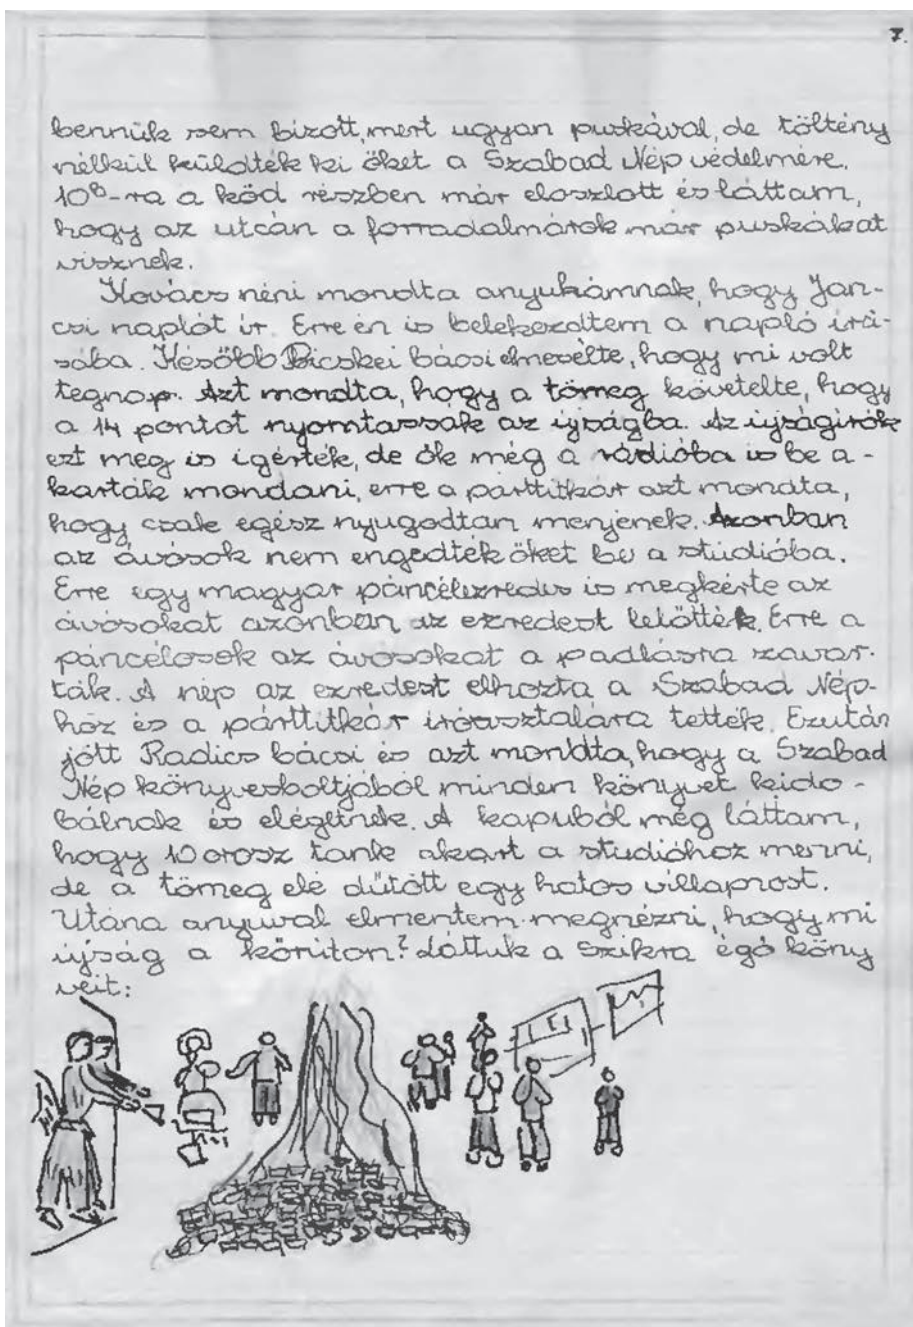 7.
bennük sem bízott, mert ugyan puskával, de töltény
nélkül küldték ki őket a Szabad Nép védelmére.
10⁸-ra a köd részben már eloszlott és láttam,
hogy az utcán a forradalmárok már puskákat
visznek.
Kovács néni mondta anyukámnak, hogy Jan-
csi naplót ír. Erre én is belekezdtem a napló írá-
sába. Később Bicskei bácsi elmesélte, hogy mi volt
tegnap. Azt mondta, hogy a tömeg követelte, hogy
a 14 pontot nyomtassák az újságba. Az újságírók
ezt meg is igérték, de ők még a rádióba is be a-
karták mondani, erre a párttitkár azt mondta,
hogy csak egész nyugodtan menjenek. Azonban
az ávósok nem engedték őket be a stúdióba.
Erre egy magyar páncélezredes is megkérte az
ávósokat azonban az ezredest lelőtték. Erre a
páncélosok az ávósokat a padlásra zavar-
ták. A nép az ezredest elhozta a Szabad Nép-
hoz és a párttitkár íróasztalára tették. Ezután
jött Radics bácsi és azt mondta, hogy a Szabad
Nép könyvesboltjából minden könyvet kido-
bálnak és elégetnek. A kapuból még láttam,
hogy 10 orosz tank akart a stúdióhoz menni,
de a tömeg elé dűtött egy hatos villamost.
Utána anyuval elmentem megnézni, hogy mi
újság a körúton? Láttuk a Szikra égő köny
veit: